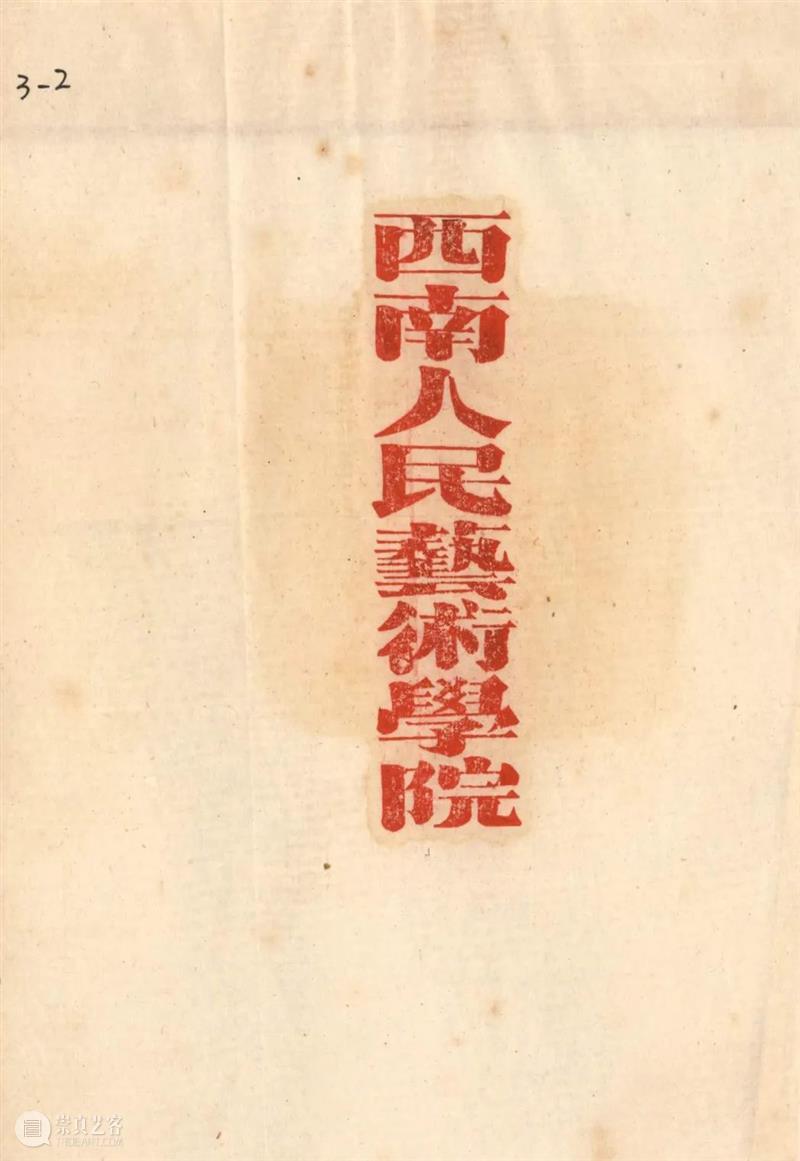 3-2
西南人民藝術學院
崇真艺客
TRUEART.COM